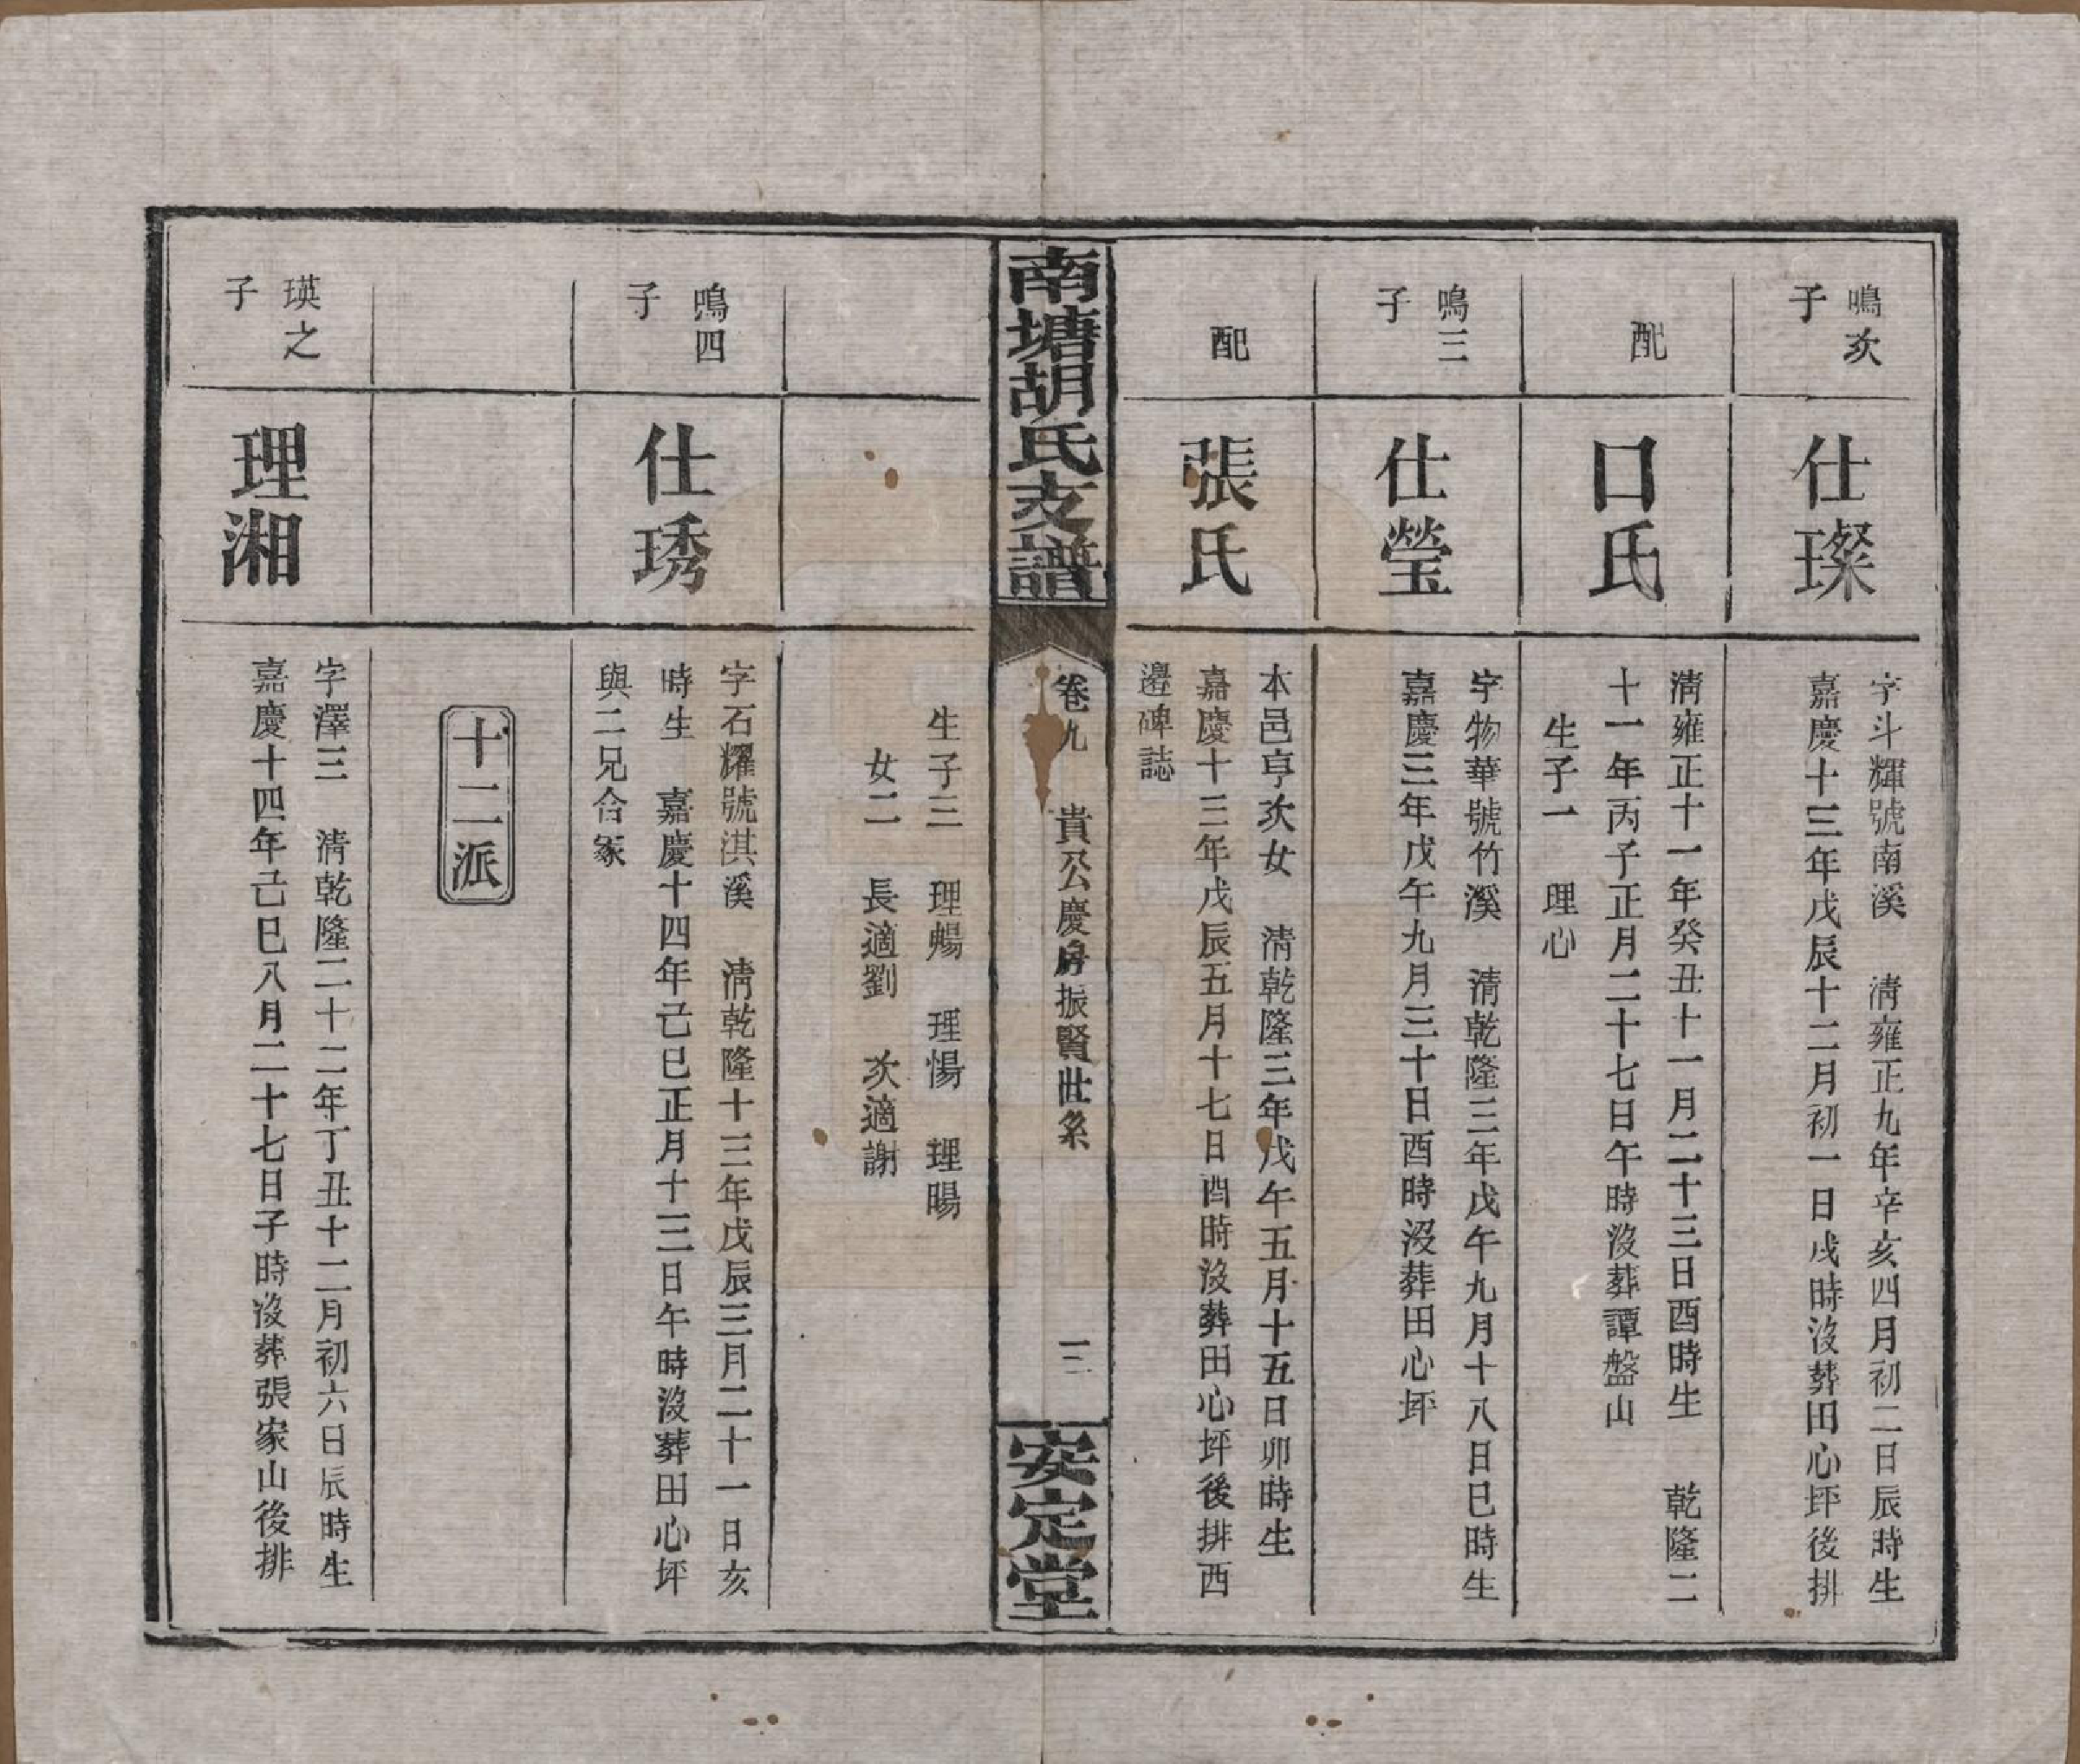 鳴次
子
仕璨
字斗輝號南溪　淸雍正九年辛亥四月初二日辰時生
嘉慶十三年戊辰十二月初一日戌時沒葬田心坪後排
配
口氏
淸雍正十一年癸丑十一月二十三日酉時生　乾隆二
十一年丙子正月二十七日午時沒葬譚盤山
生子一　理心
鳴三
子
仕瑩
字物華號竹溪　淸乾隆三年戊午九月十八日巳時生
嘉慶三年戊午九月三十日酉時沒葬田心坪
配
張氏
本邑亨次女　淸乾隆三年戊午五月十五日卯時生
嘉慶十三年戊辰五月十七日酉時沒葬田心坪後排西
邉碑誌
南塘胡氏支譜
卷九　貴公慶房振賢世系
三
安定堂
生子三　理暢　理愓　理暘
女二　長適劉　次適謝
鳴四
子
仕琇
字石耀號淇溪　淸乾隆十三年戊辰三月二十一日亥
時生　嘉慶十四年己巳正月十三日午時沒葬田心坪
與二兄合冢
十二派
瑛之
子
理湘
字澤三　淸乾隆二十二年丁丑十二月初六日辰時生
嘉慶十四年己巳八月二十七日子時沒葬張家山後排